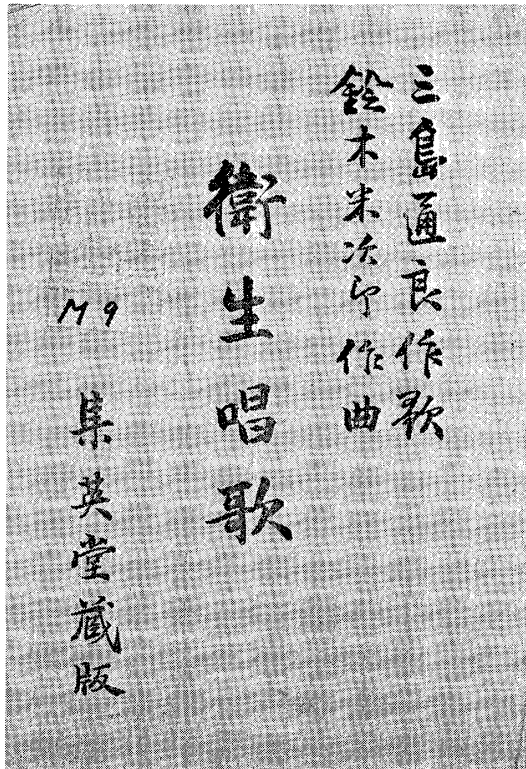 三島通良作歌
鈴木米次郎作曲
衛生唱歌
M9
集英堂蔵版